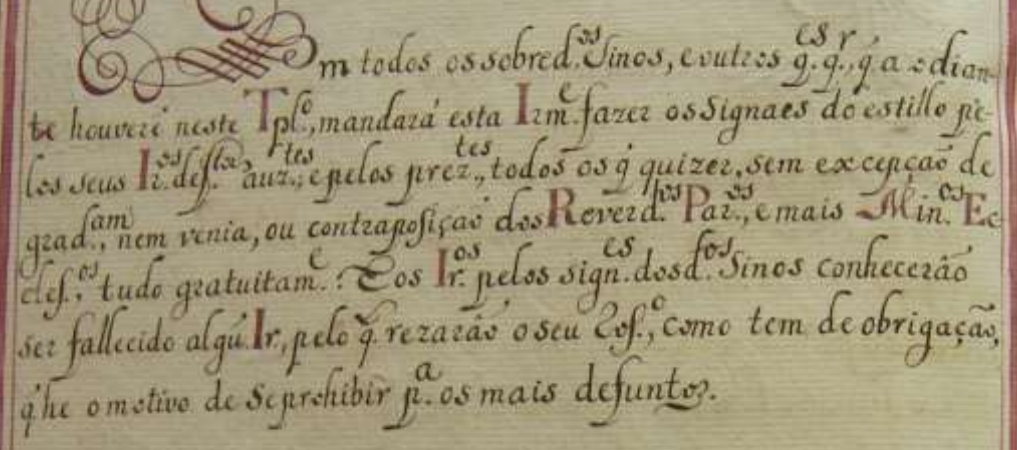 Com todos os sobred.os Sinos, e outros q.es q.r, q́ a odian-
te houvere neste Tpl.o, mandará esta Irm.e fazer os Signaes do estillo pe-
los seus Ir.os defta, auz.tes, e pelos prez.tes, todos os q́ quizer, sem excepçaõ de
grad.am, nem venia, ou contraposiçaõ dos Reverd.os Par.os, e mais Min.os Ec-
cles.os, tudo gratuitam.e: E os Ir.os pelos sign.es dosd.os Sinos conhecerâo
ser fallecido algú Ir, pelo q̃ rezarâo o seu Cof.o, como tem de obrigaçaõ,
q́ he o motivo de se prohibir p.a os mais defuntos.